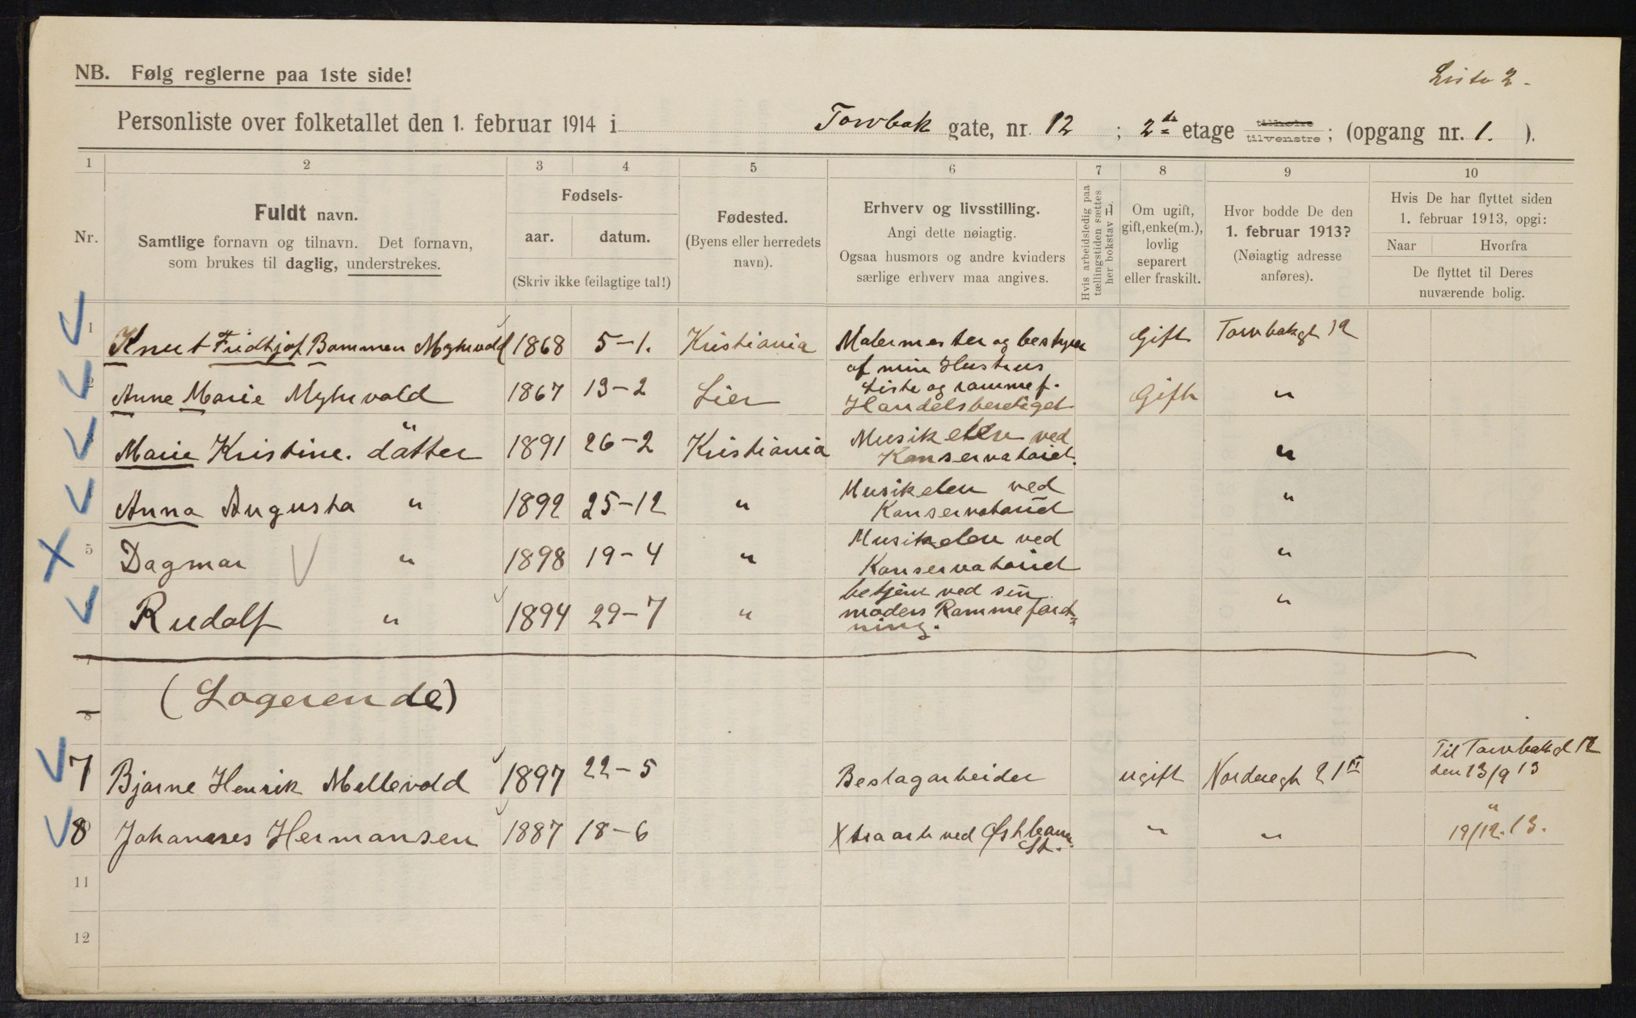 NB. Følg reglerne paa 1ste side!
Liste 2.
Personliste over folketallet den 1. februar 1914 i Torvbak gate, nr. 12 ; 2de etage tilhøire tilvenstre ; (opgang nr. 1. ).
1 2 3 4 5 6 7 8 9 10
Nr.
Fuldt navn.
Samtlige fornavn og tilnavn. Det fornavn,
som brukes til daglig, understrekes.
Fødsels-
aar. datum.
(Skriv ikke feilagtige tal!)
Fødested.
(Byens eller herredets
navn).
Erhverv og livsstilling.
Angi dette nøiagtig.
Ogsaa husmors og andre kvinders
særlige erhverv maa angives.
Hvis arbeidsledig paa
tællingstiden sættes
her bokstav L
Om ugift,
gift, enke(m.),
lovlig
separert
eller fraskilt.
Hvor bodde De den
1. februar 1913?
(Nøiagtig adresse
anføres).
Hvis De har flyttet siden
1. februar 1913, opgi:
Naar Hvorfra
De flyttet til Deres
nuværende bolig.
1 Knut Fridtjof Bommen Myhrvold 1868 5-1. Kristiania Malermester og bestyrer Gift Torvbakgt 12
af min Hustrus
2 Anne Marie Myhrvold 1867 13-2 Lier Liste og rammef. Gift "
Handelsberetiget
Marie Kristine. datter 1891 26-2 Kristiania Musikelev ved "
Konservatoriet.
Anna Augusta " 1892 25-12 " Musikelev ved "
Konservatoriet
5 Dagmar " 1898 19-4 " Musikelev ved "
Konservatoriet
Rudolf " 1894 29-7 " betjent ved sin "
moders Rammeforret-
ning.
7
(Logerende)
8
7 Bjarne Henrik Mellevold 1897 22-5 Beslagarbeider ugift Norderegt 21 III Til Torvbakgt 12
den 13/9 13
8 Johannes Hermansen 1887 18-6 Xtraarb ved Østbane " " "
St. 19/12.13.
11
12